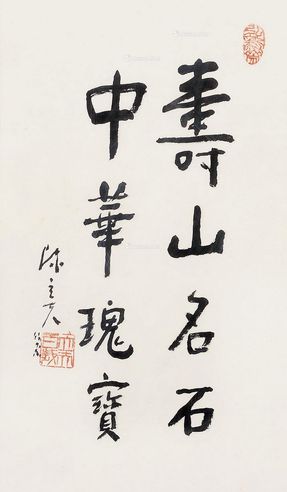 壽山名石
中華瑰寶
陳立夫